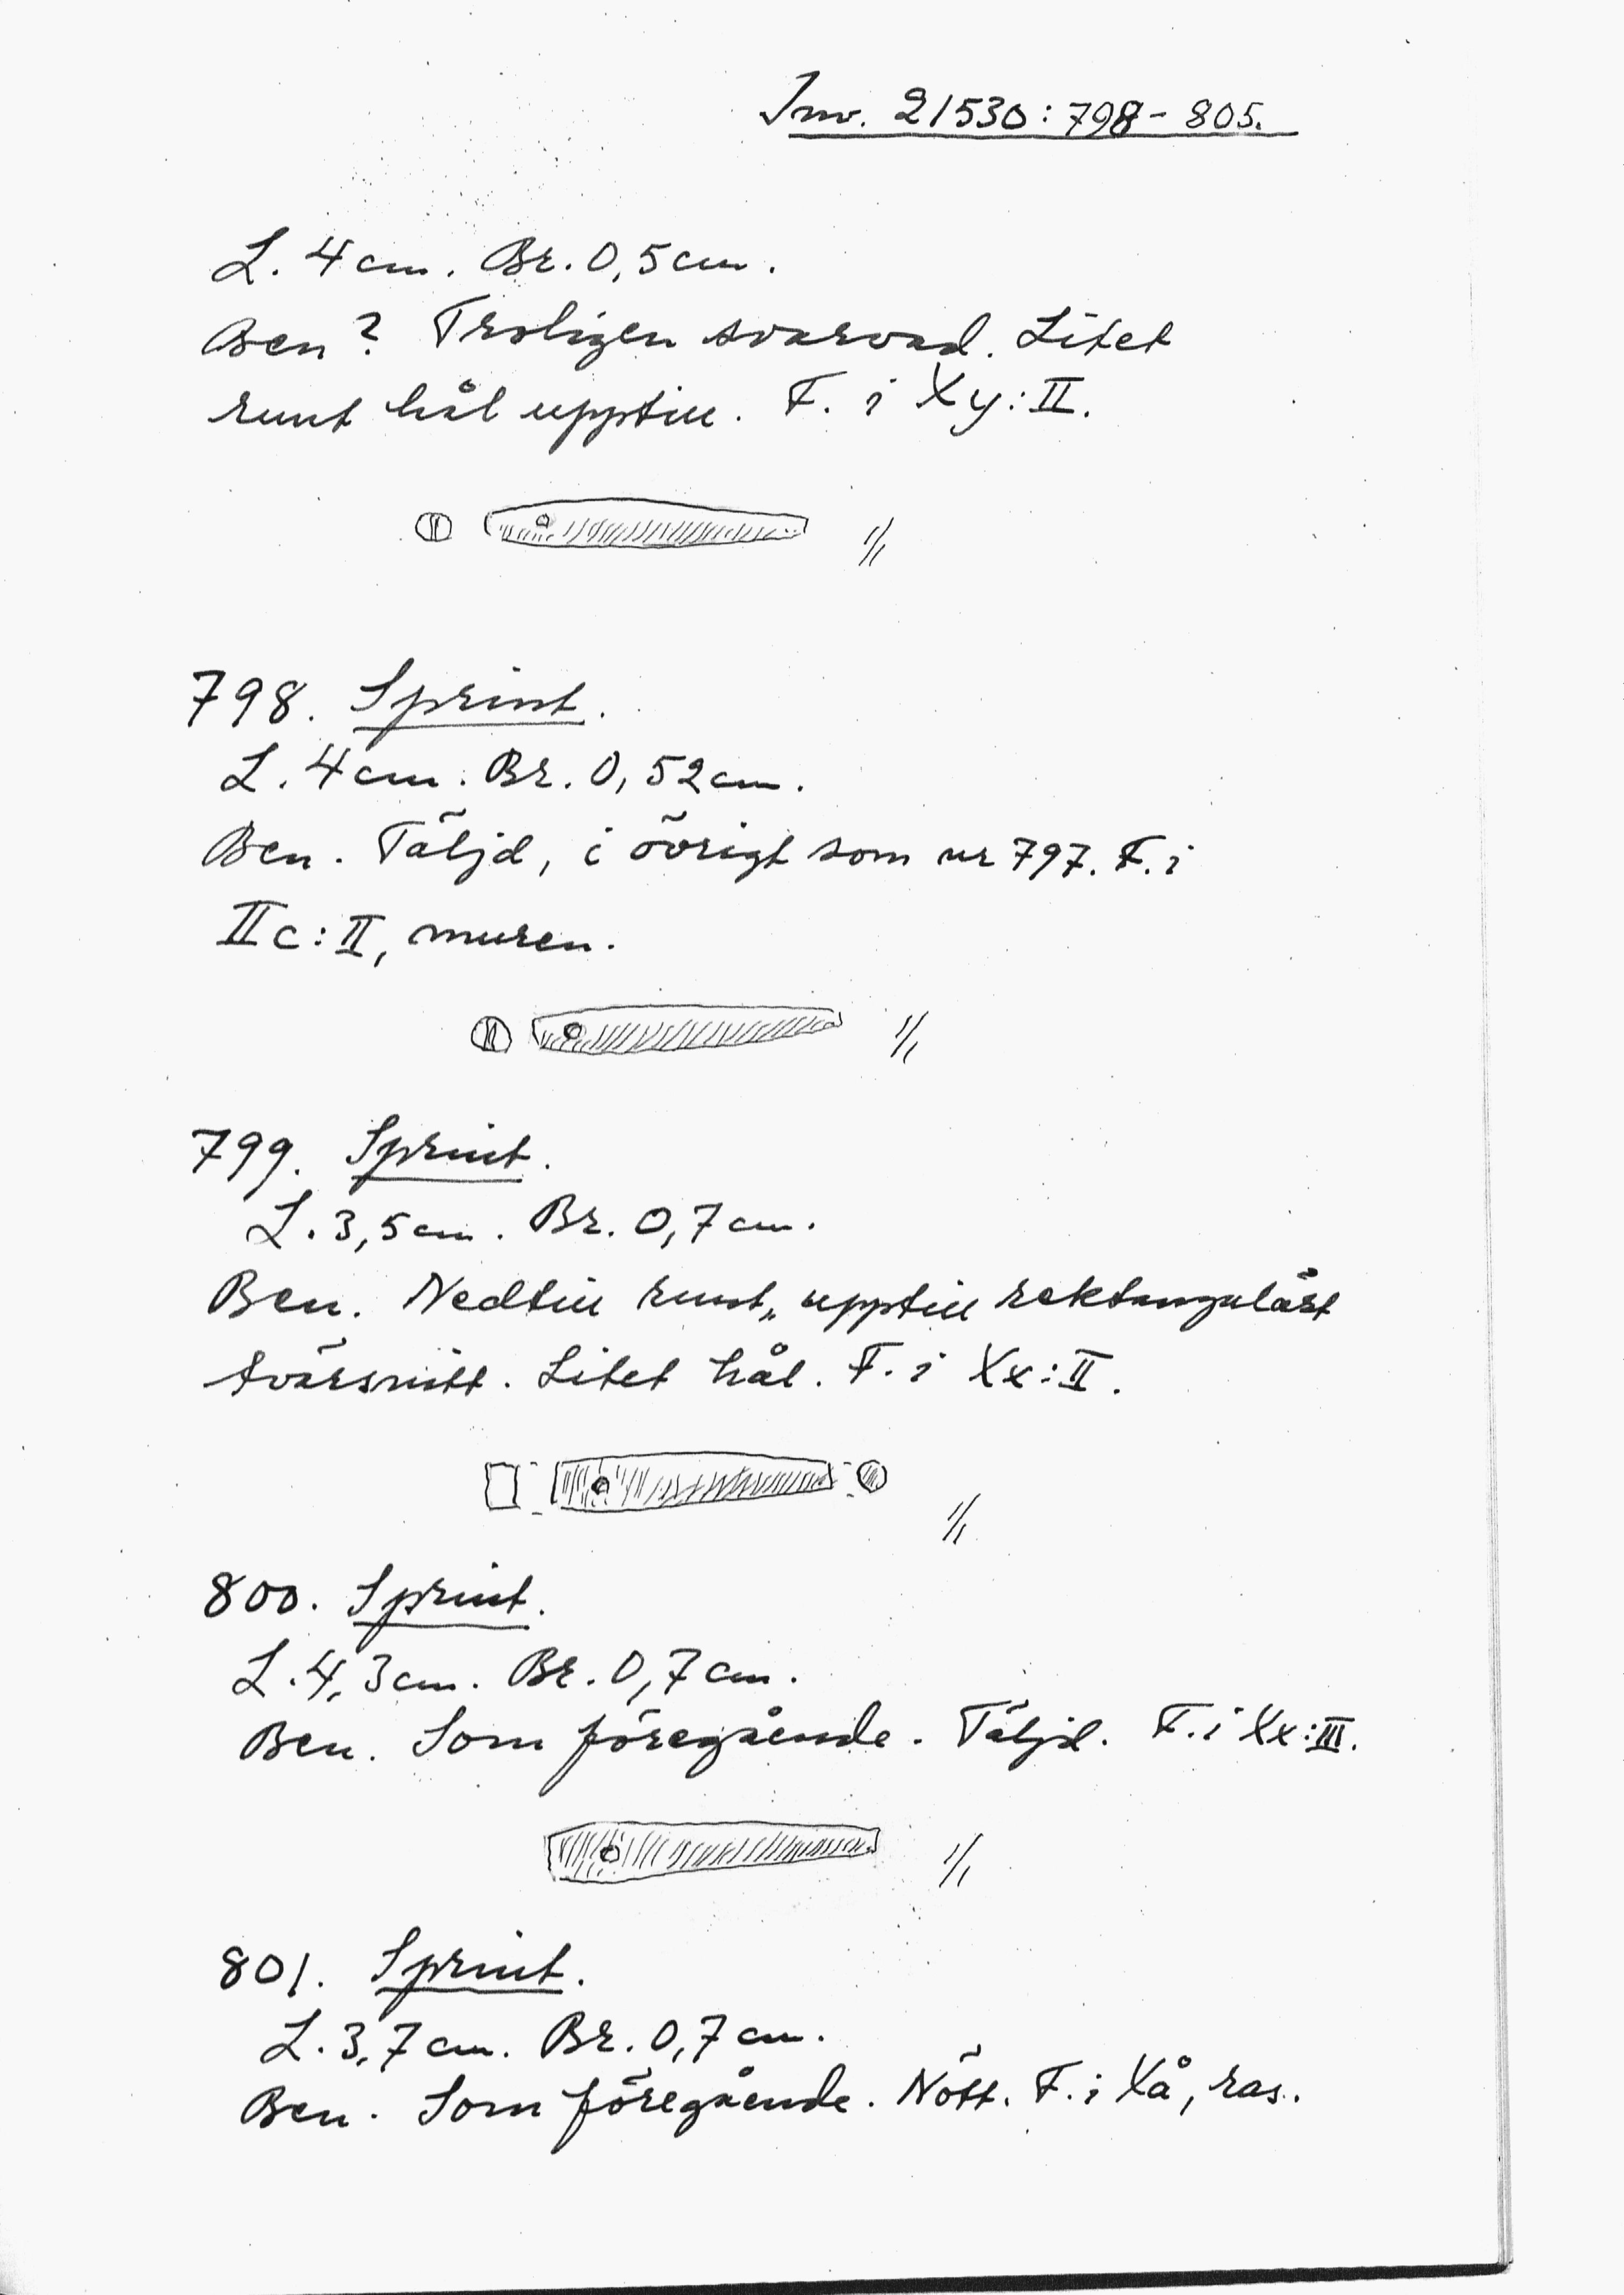 Inv. 21530:798-805.
L. 4 cm. Br. 0,5 cm.
Ben? Troligen svarvad. Litet
runt hål upptill. F. i Xy:II.
1/1
798. Sprint.
L. 4 cm. Br. 0,52 cm.
Ben. Täljd, i övrigt som nr 797. F. i
IIc:II, muren.
1/1
799. Sprint.
L. 3,5 cm. Br. 0,7 cm.
Ben. Nedtill runt, upptill rektangulärt
tvärsnitt. Litet hål. F. i Xx:II.
1/1
800. Sprint.
L. 4,3 cm. Br. 0,7 cm.
Ben. Som föregående. Täljd. F. i Xx:III.
1/1
801. Sprint.
L. 3,7 cm. Br. 0,7 cm.
Ben. Som föregående. Nött. F. i Xå, ras.